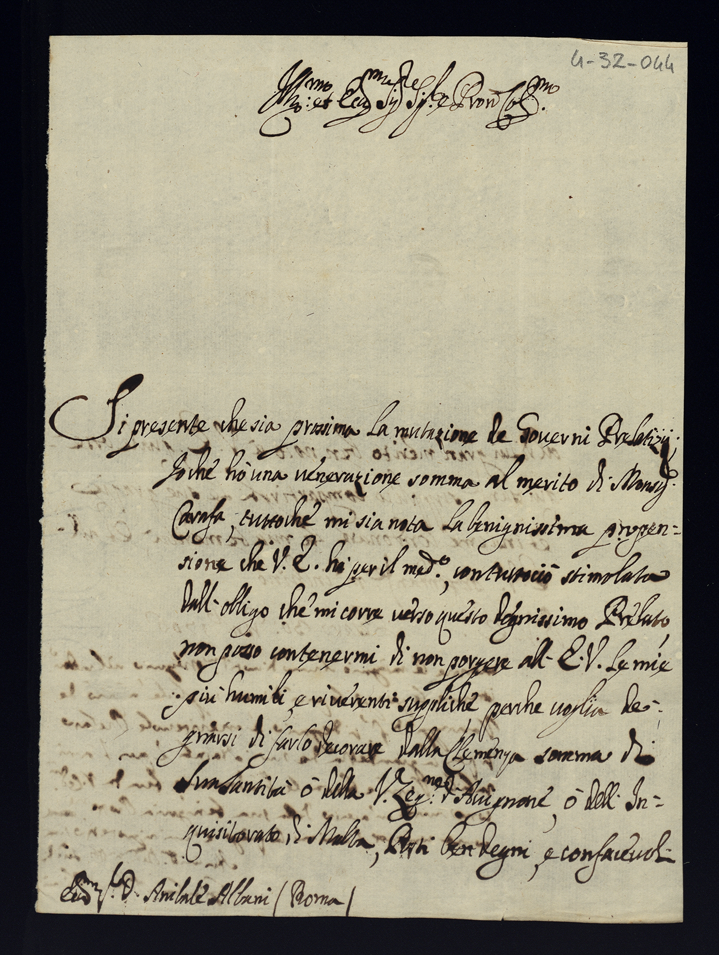 4-32-044
Ill.mo et Ecc.mo Sig.re Sig.r e Pron Col.mo
Si presente che sia prossima la mutazione de Governi Prelatizij.
Io che hò una venerazione somma al merito di Monsig.
Carafa, tuttoche mi sia nota la benignissima propen=
sione che V. E. hà per il med.o, contuttociò stimolata
dall'obligo che mi corre verso questo degnissimo Prelato
non posso contenermi di non porgere all'E. V. le mie
più humili, e riverenti suppliche perche voglia de=
gnarsi di farlo decorare dalla Clemenza somma di
Sua Santità ò della V. Leg.ne d'Avignone, ò dell'In=
quisitorato di Malta, Posti ben degni, e confacevoli
D. Anibale Albani (Roma)